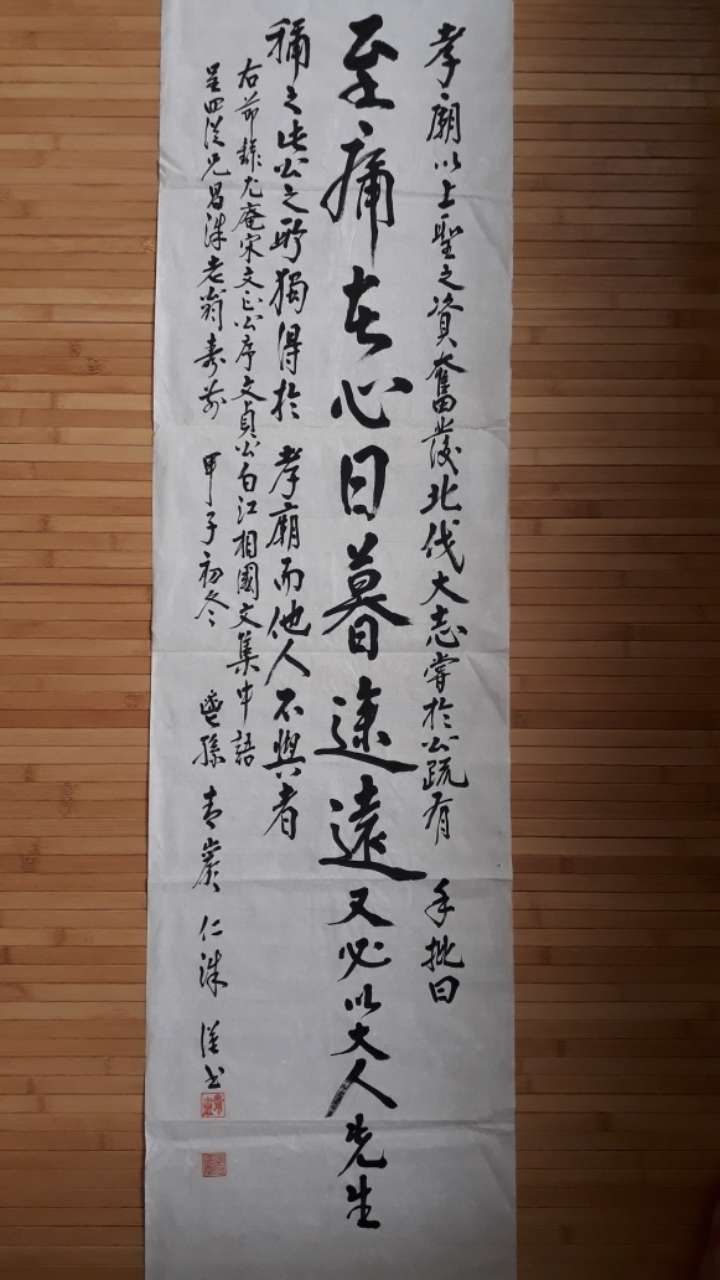 孝廟以上聖之資奮發北伐大志嘗於公疏有 手批曰
至痛在心日暮途遠又必以大人先生
稱之此公之所獨得於 孝廟而他人不與者
右節錄尤庵宋文正公序文貞公白江相國文集中語
呈四從兄昌洙老翁壽前 甲子初冬 孫 青 仁洙 謹書